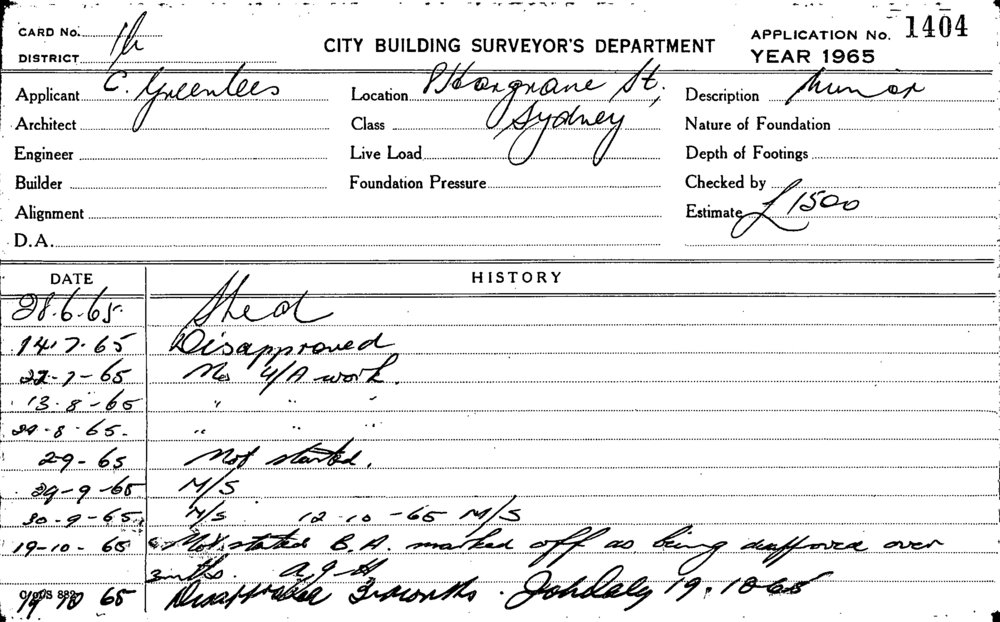 CARD No. 1h
DISTRICT
CITY BUILDING SURVEYOR'S DEPARTMENT
APPLICATION No. 1404
YEAR 1965
Applicant C. Greenlees
Location Hargrave St,
Sydney
Description Minor
Architect
Class
Nature of Foundation
Engineer
Live Load
Depth of Footings
Builder
Foundation Pressure
Checked by
Alignment
Estimate £1500
D.A.
DATE HISTORY
28.6.65. Shed
14.7.65 Disapproved
22-7-65 No U/A work.
13-8-65 " " "
29-8-65. " " "
2-9-65 Not started.
29-9-65 N/S
30-9-65 N/S 12-10-65 N/S
19-10-65 Not started B.A. marked off as being disapproved over
3 mths. A.J.H
19 10 65 Disapproved 3 months. 19.10.65